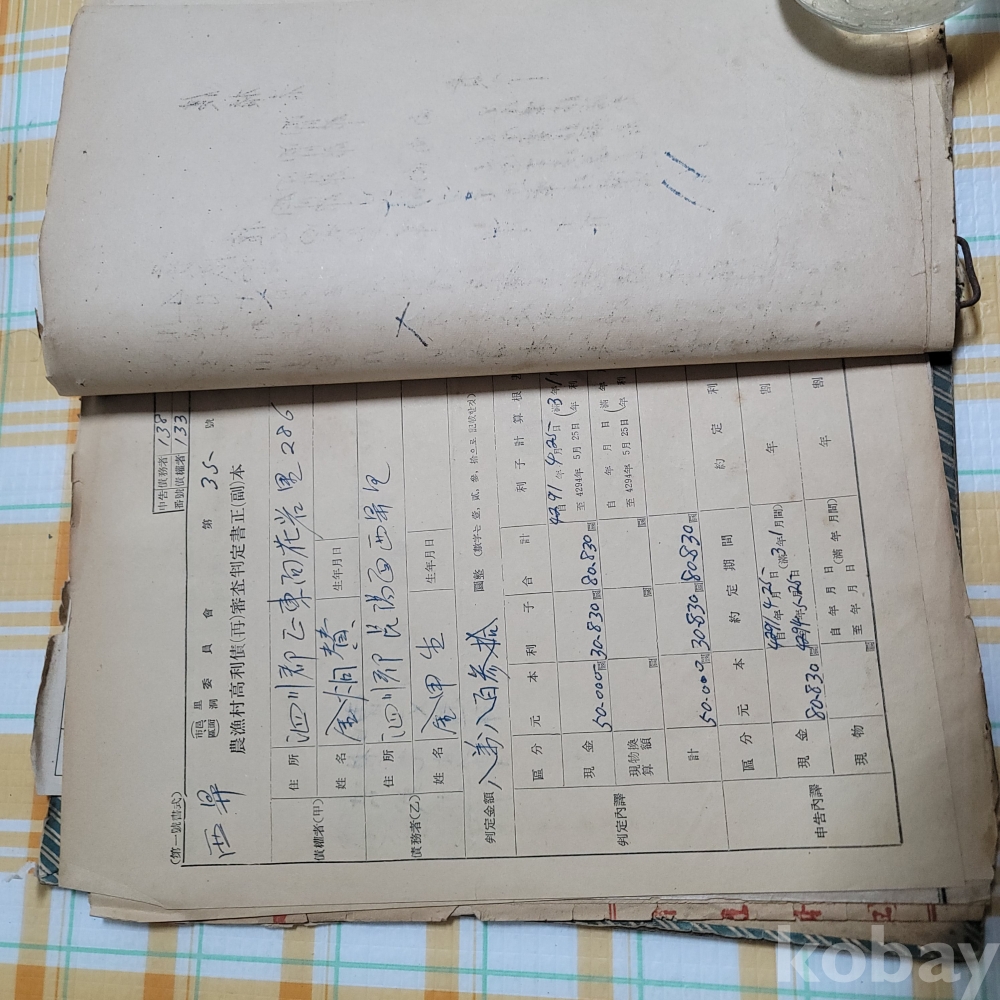 (第一號書式)
申告 債務者 138
番號 債權者 133
西 市邑區面 里洞 委員會 第 35 號
農漁村高利債(再)審査判定書正(副)本
債權者(甲) 住所 泗川郡 正東面 花岩里 286
姓名 金炯 生年月日
債務者(乙) 住所 泗川郡 昆陽面 西 里
姓名 金甲生 生年月日
判定金額 八萬八百參拾 圜整 (數字는 壹, 貳, 參, 拾으로 記載할것)
判定內譯 區分 元本 利子 合計 利子計算根
現金 50.000圜 30.830圜 80.830圜 自4291年4月25日 至4294年5月25日 (滿3年1
現物換算額 圜 圜 圜 自 年 月 日 至4294年5月25日 (滿 年
計 50.000圜 30.830圜 80.830圜
申告內譯 區分 元本 約定期間 約定利
現金 80.830圜 自4291年4月25日 至4294年5月25日 (滿3年1月間) 年 割
現物 自 年 月 日 至 年 月 日 (滿 年 月間) 年 割
kobay